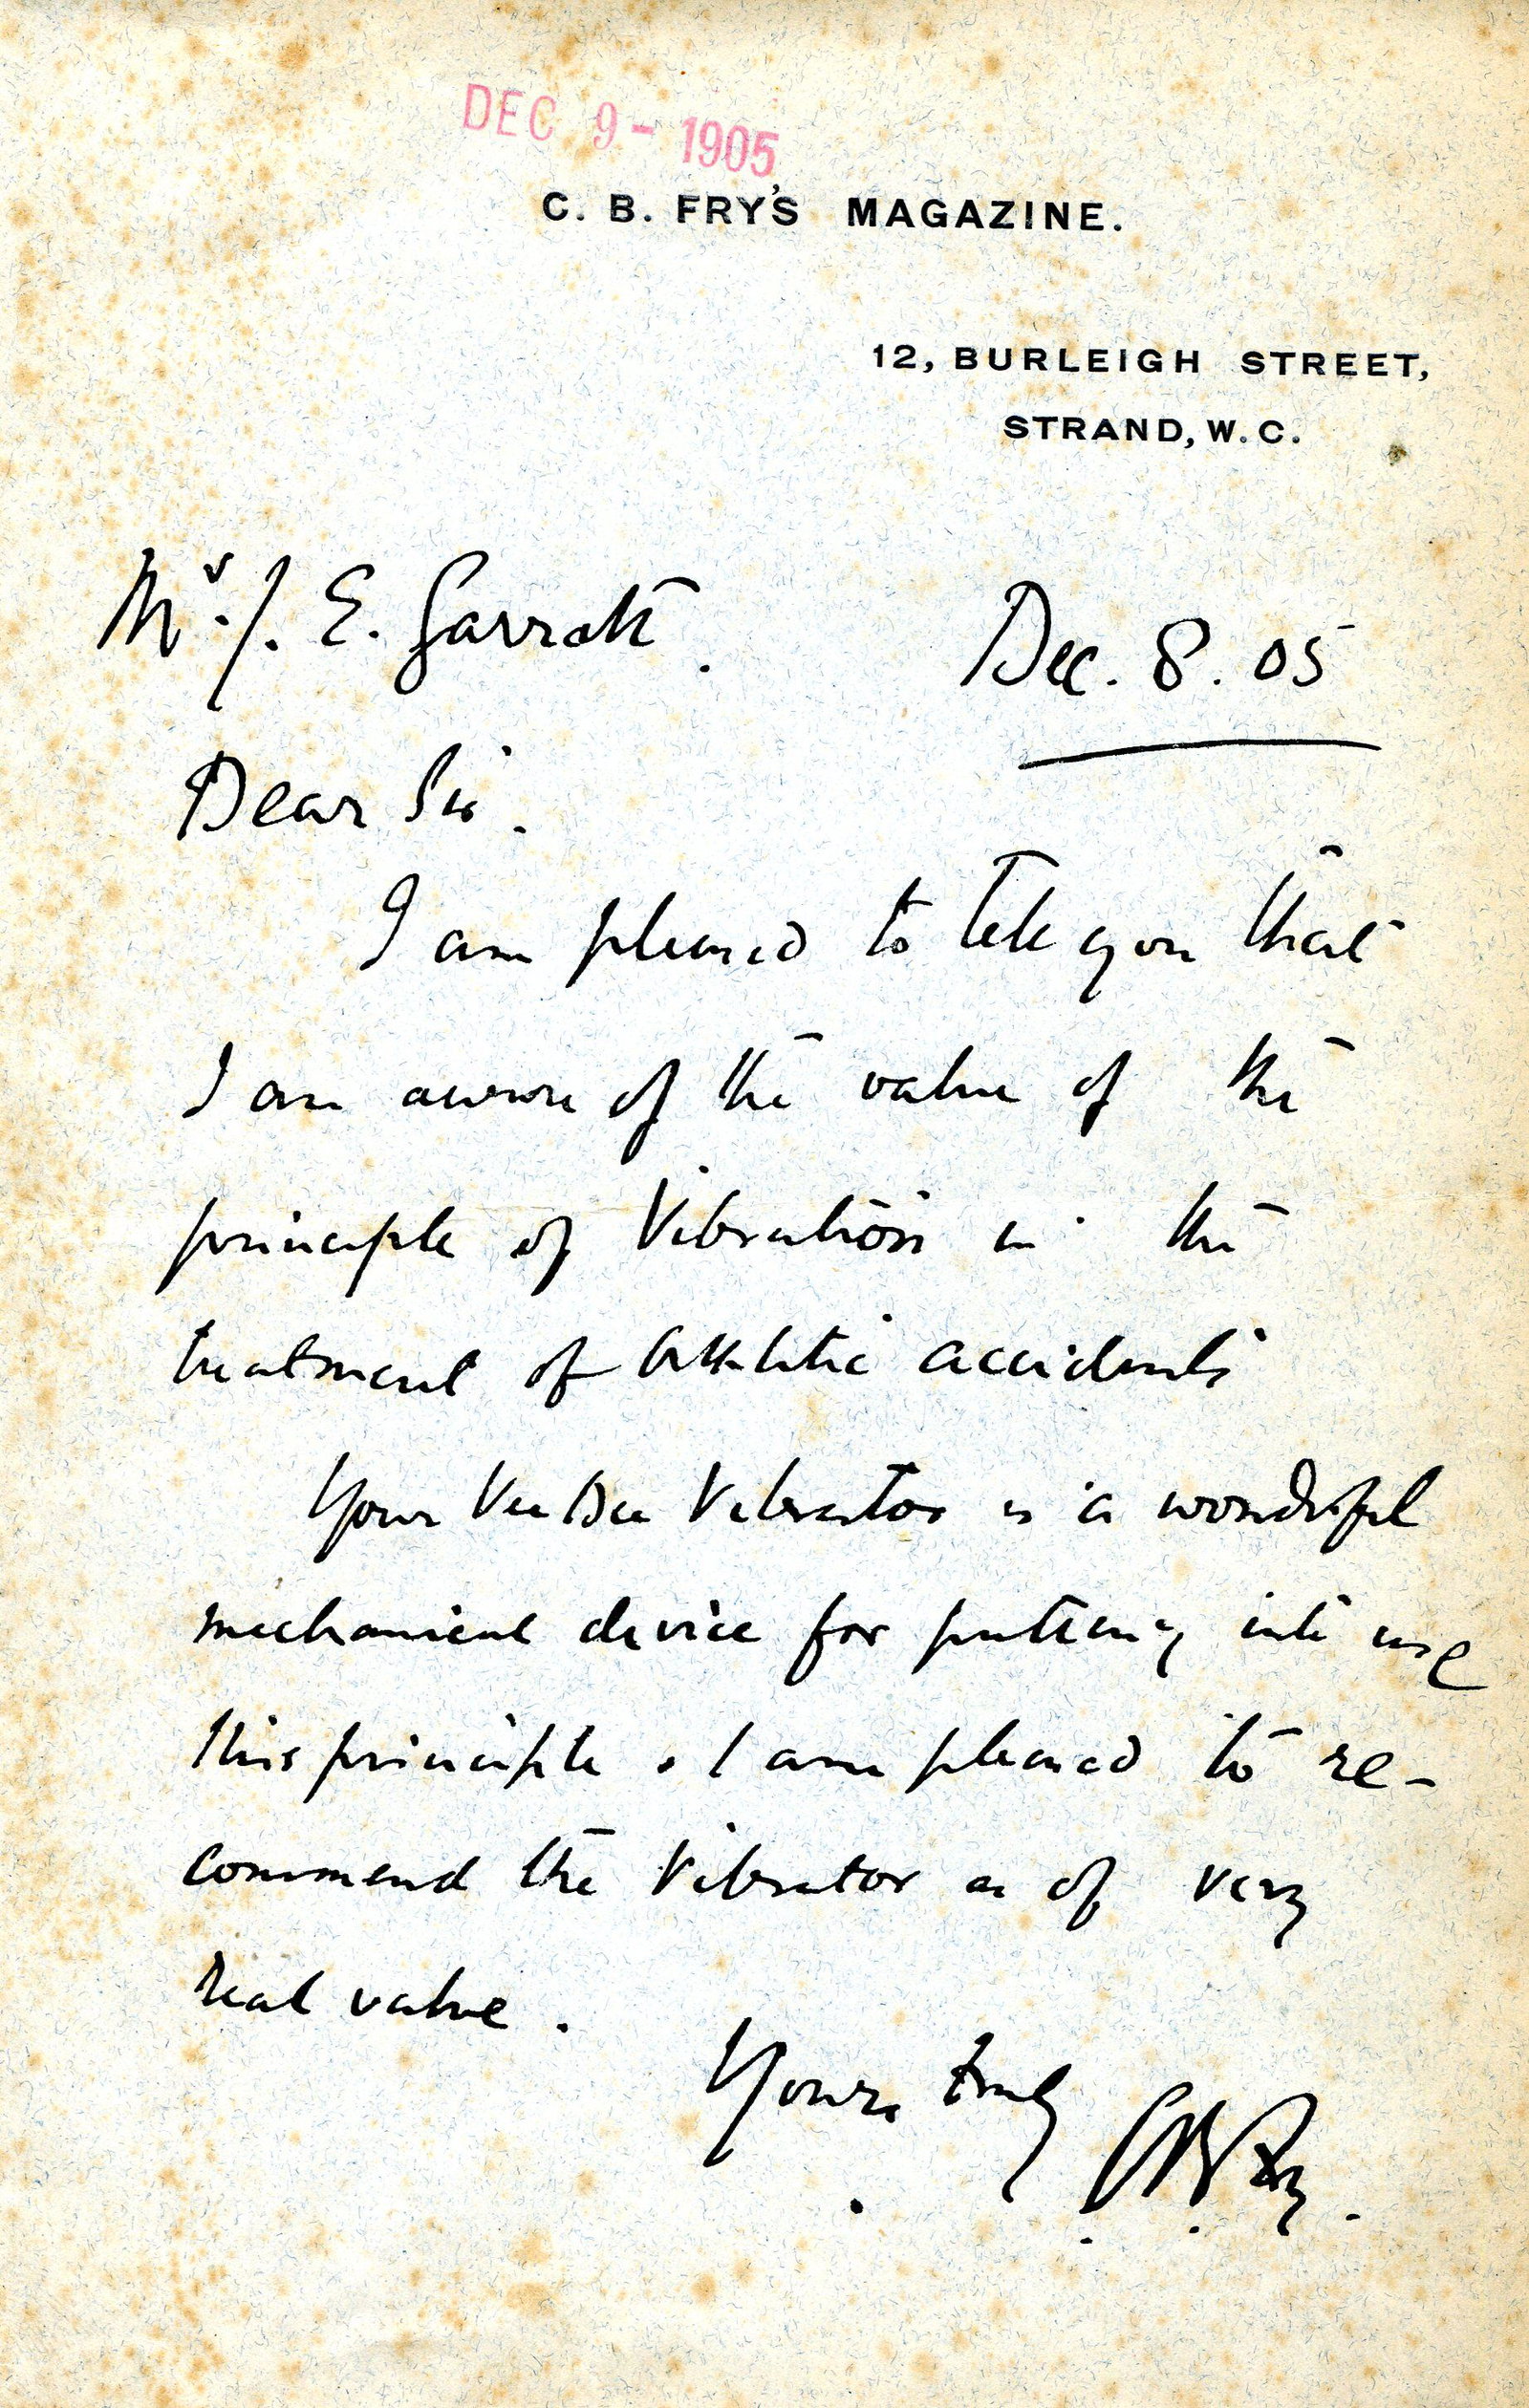 DEC 9 - 1905
C. B. FRY'S MAGAZINE.
12, BURLEIGH STREET,
STRAND, W. C.
Mr. J. E. Garratt.
Dec. 8. 05
Dear Sir.
I am pleased to tell you that
I am aware of the value of the
principle of Vibration in the
treatment of Athletic accidents
Your Vee Dee Vibrator is a wonderful
mechanical device for putting into use
this principle. I am pleased to re-
commend the Vibrator as of very
real value.
Yours truly
C B Fry.